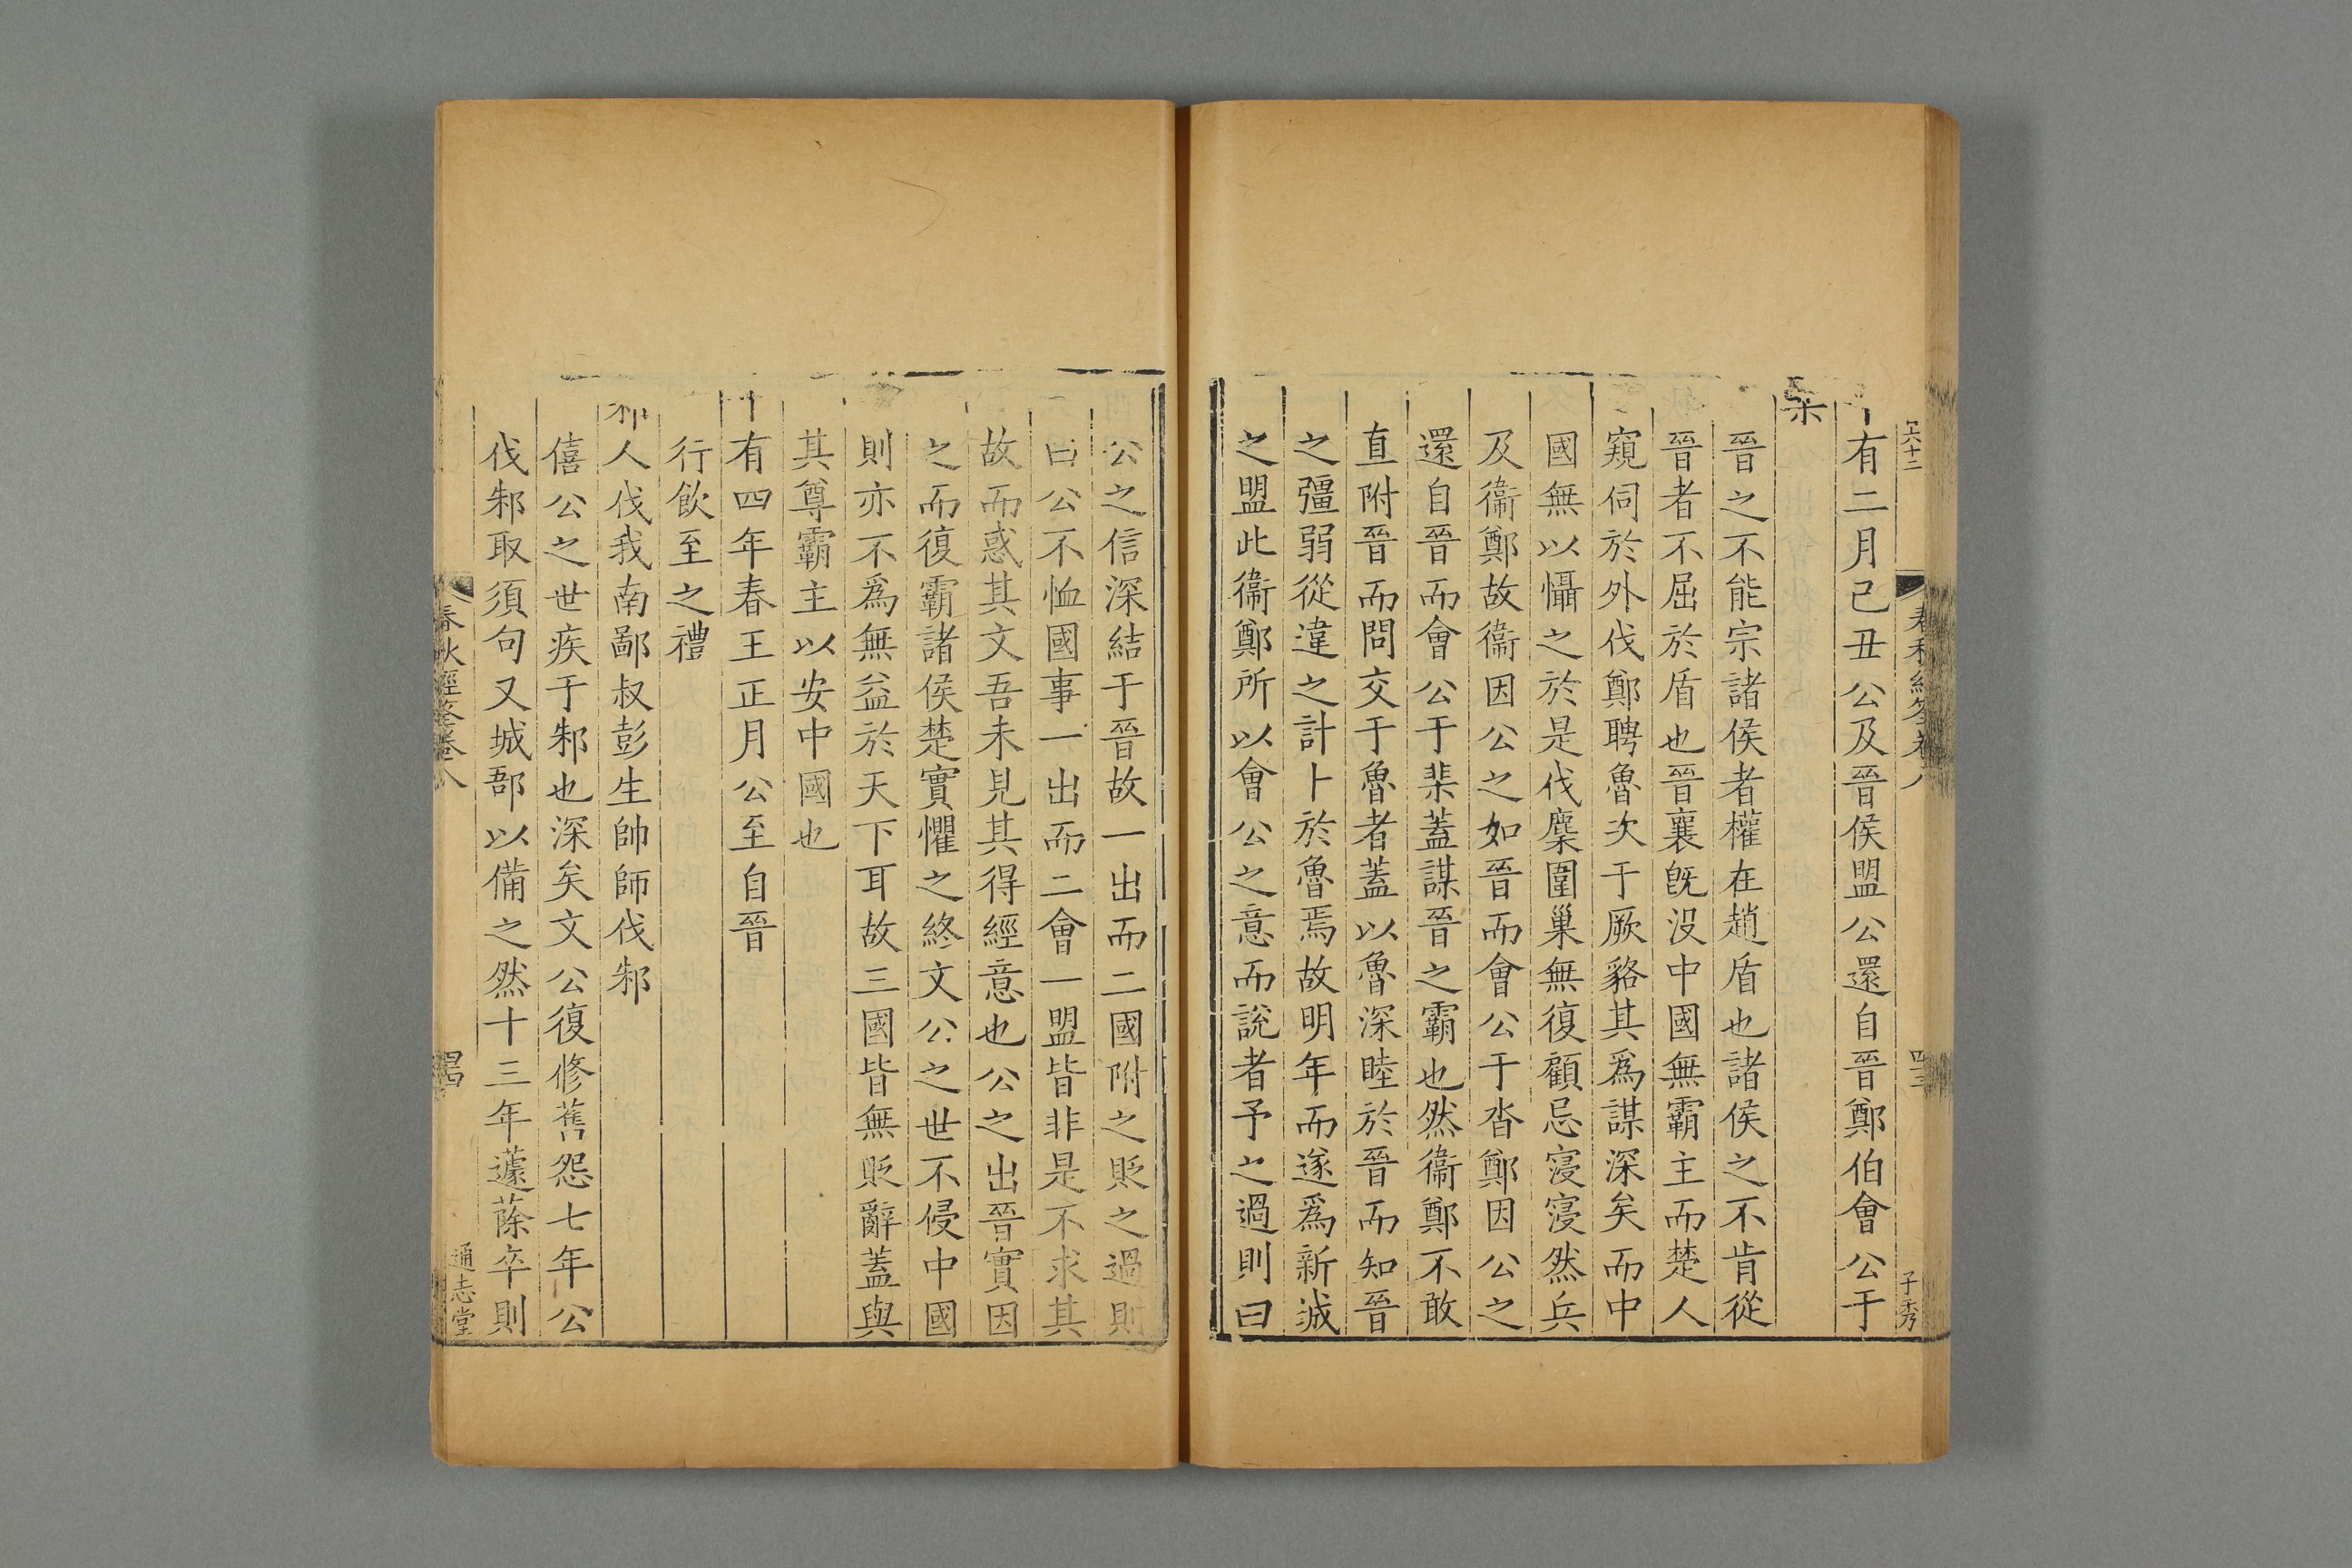 春秋經筌卷八
子秀
十有二月己丑公及晉侯盟公還自晉鄭伯會公于
棐
晉之不能宗諸侯者權在趙盾也諸侯之不肯從
晉者不屈於盾也晉襄旣沒中國無霸主而楚人
窺伺於外伐鄭聘魯次于厥貉其爲謀深矣而中
國無以懾之於是伐麇圍巢無復顧忌寖寖然兵
及衞鄭故衞因公之如晉而會公于沓鄭因公之
還自晉而會公于棐蓋謀晉之霸也然衞鄭不敢
直附晉而問交于魯者蓋以魯深睦於晉而知晉
之彊弱從違之計卜於魯焉故明年而遂爲新城
之盟此衞鄭所以會公之意而說者予之過則曰
公之信深結于晉故一出而二國附之貶之過則
曰公不恤國事一出而二會一盟皆非是不求其
故而惑其文吾未見其得經意也公之出晉實因
之而復霸諸侯楚實懼之終文公之世不侵中國
則亦不爲無益於天下耳故三國皆無貶辭蓋與
其尊霸主以安中國也
十有四年春王正月公至自晉
行飲至之禮
邾人伐我南鄙叔彭生帥師伐邾
僖公之世疾于邾也深矣文公復修舊怨七年公
伐邾取須句又城郚以備之然十三年蘧蒢卒則
春秋經筌卷八
通志堂